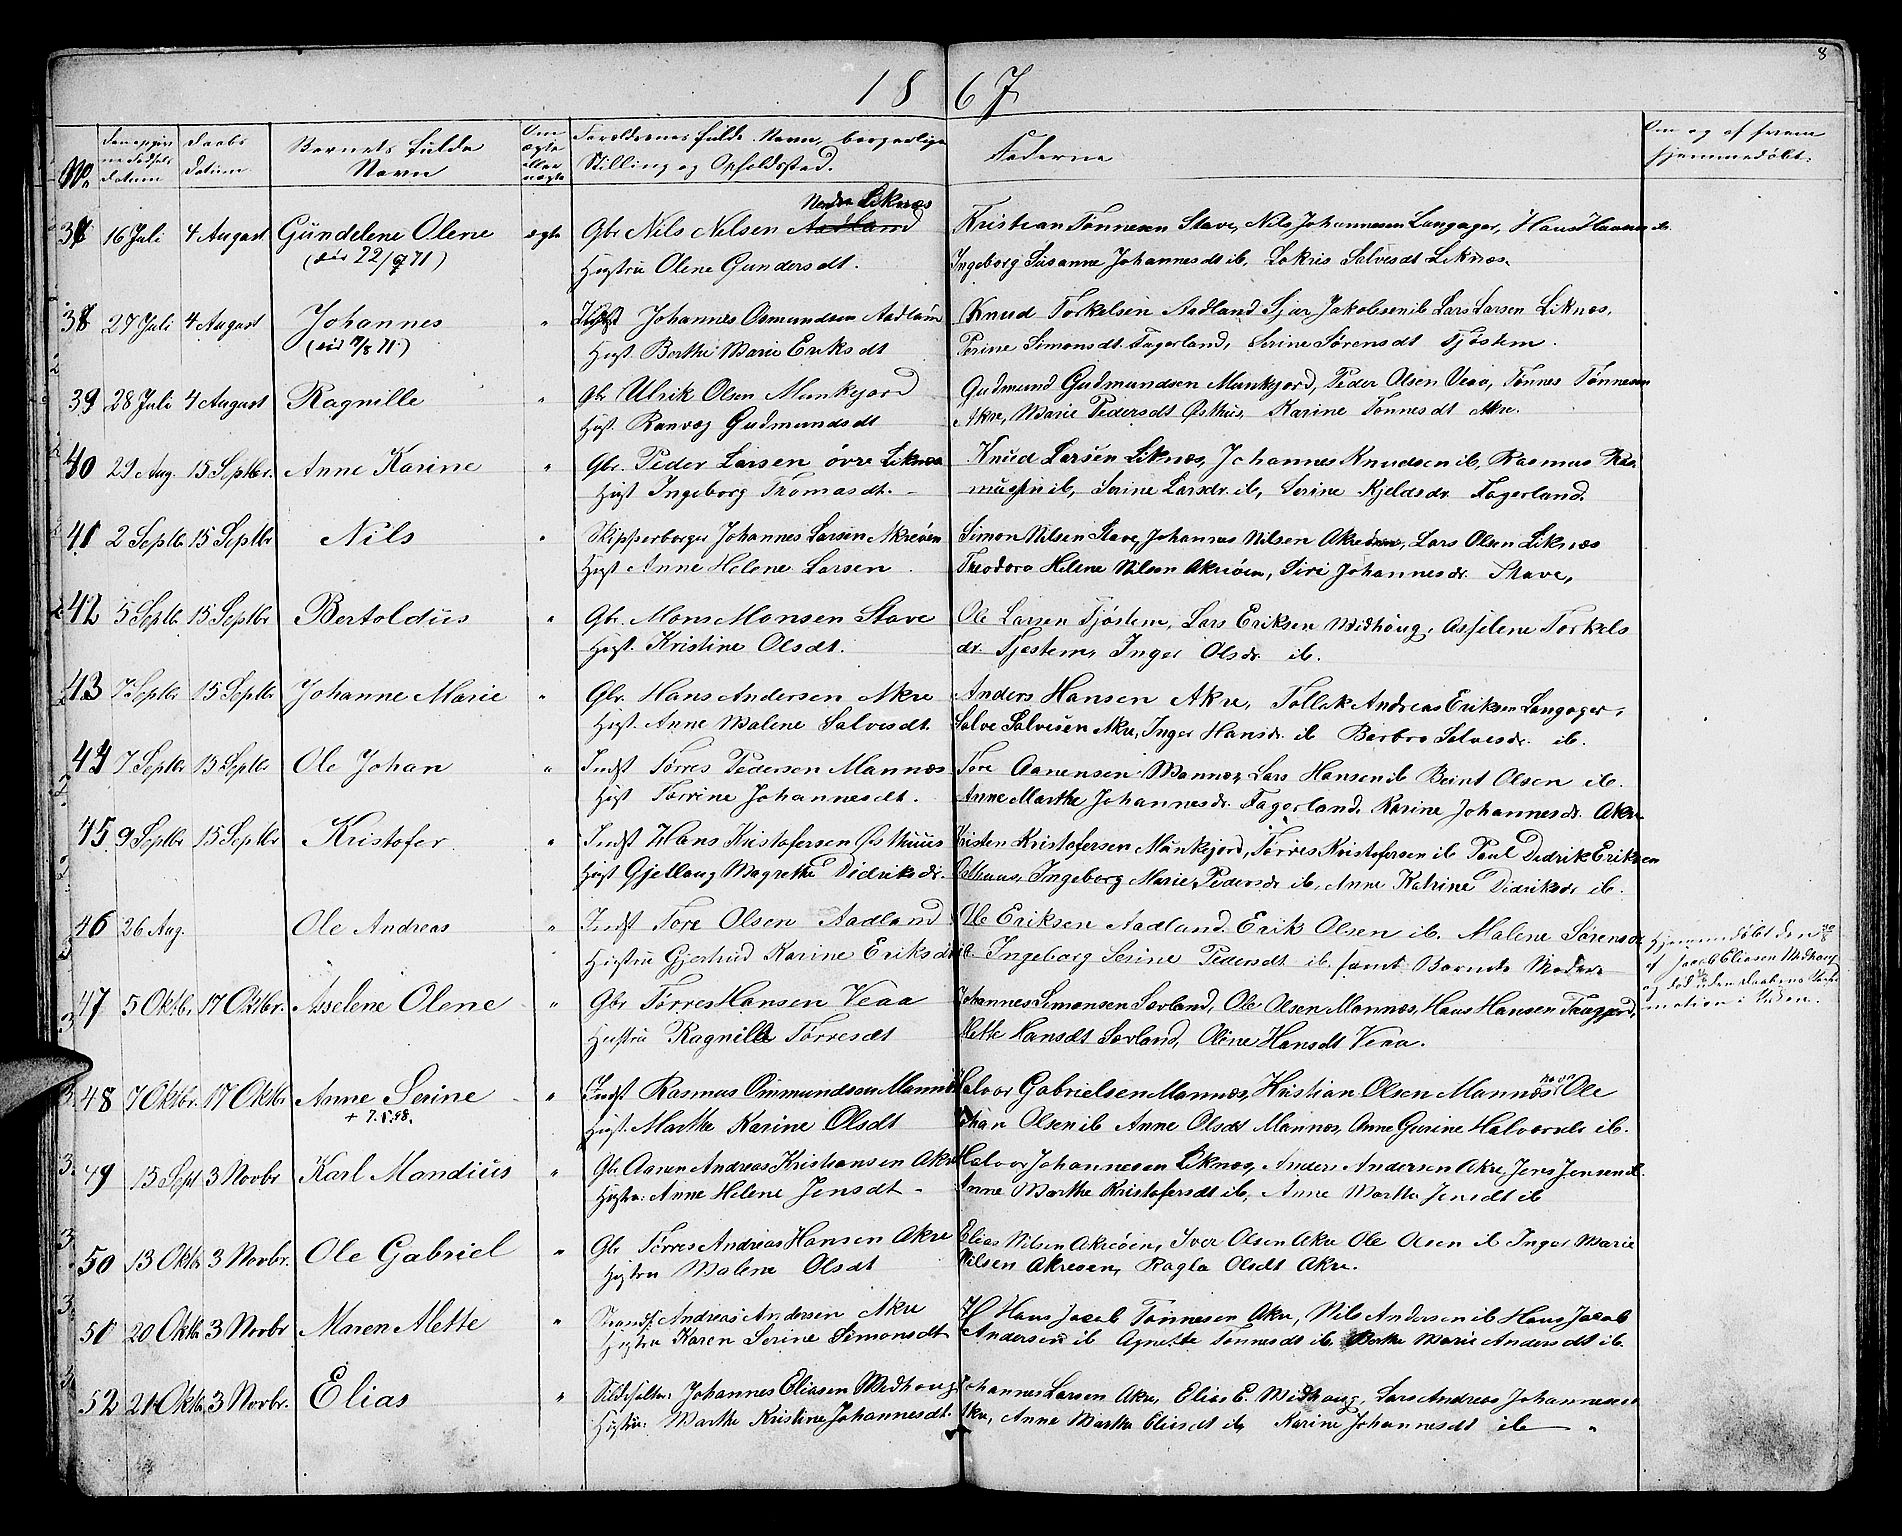 8
18 67
No. Fødselsdatum Daabsdatum Barnets fulde Navn Om ægte eller uægte Forældrenes fulde Navn, borgerlige Stilling og Opholdssted. Fadderne Om og af hvem hjemmedøbt.
Nedre Liknæs
37 16 Juli 4 August Gundelene Olene ægte Gbr. Nils Nilsen Aadland Kristian Tønnesen Stave, Nils Johannesen Langager, Hans Hansen ib.
(død 22/9 71) Hustru Olene Gundersdt. Ingeborg Susanne Johannesdt ib, Lokris Salvesdt Liknæs.
38 27 Juli 4 August Johannes " Johannes Osmundsen Aadland Knud Torkelsen Aadland, Sjur Jakobsen ib Lars Larsen Liknæs,
Hust. Berthe Marie Eriksdt Serine Simonsdt. Fagerland, Serine Sørensdt Tjøstem.
39 28 Juli 4 August Ragnille " Gbr Ulrik Olsen Munkejord Gudmund Gudmundsen Munkjord, Peder Olsen Veaa, Tønnes Tønnesen
Hust. Ranvæg Gudmundsdt Akre, Marie Pedersdt Østhus, Karine Tønnesdt Akre.
40 29 Aug. 15 Septbr. Anne Karine " Gbr. Peder Larsen øvre Liknæs Knud Larsen Liknæs, Johannes Knudsen ib, Rasmus Ras-
Hust Ingeborg Thomasdt. mussen ib, Serine Larsdr. ib, Serine Kjeldsdr. Fagerland.
41 2 Septbr 15 Septbr Nils " Skipperborger Johannes Larsen Akreøen Simon Nilsen Stave, Johannes Nilsen Akreøen, Lars Olsen Liknæs
Hust Anne Helene Larsen Theodora Helene Nilsen Akreøen, Siri Johannesdr. Stave,
42 5 Septbr 15 Septbr Bertoldus " Gbr. Mons Monsen Stave Ole Larsen Tjøstem, Lars Eriksen Medhoug, Asselene Torkels
Hust. Kristine Olsdt. dr. Tjøstem, Inger Olsdr. ib.
43 7 Septbr 15 Septbr Johanne Marie " Gbr. Hans Andersen Akre Anders Hansen Akre, Tollak Andreas Eriksen Langager,
Hust. Anne Malene Salvesdt. Salve Salvesen Akre, Inger Hansdr. ib Barbro Salvesdr. ib.
44 7 Septbr 15 Septbr Ole Johan " Indst Tørres Pedersen Mannæs Tore Aanensen Mannæs, Lars Hansen ib Beint Olsen ib.
Hust Torrine Johannesdt. Anne Marthe Johannesdr. Fagerland, Karine Johannesdr. Akre
45 9 Septbr 15 Septbr Kristofer " Indst Hans Kristofersen Østhuus Kristen Kristofersen Munkejord, Tørres Kristofersen ib Paul Didrik Eriksen
Hust Gjellaug Magrethe Didriksdr. Østhuus, Ingeborg Marie Pedersdr ib, Anne Katrine Didriksdr ib.
46 26 Aug. Ole Andreas " Indst Tore Olsen Aadland Ole Eriksen Aadland Erik Olsen ib. Malene Sørensdr Hjemmedøbt den
Hustru Gjertrud Karine Eriksdr ib. Ingeborg Serine Pedersdt ib. samt Barnets Moder. af Jacob Eliasen Medhoug
47 5 Oktbr. 17 Oktbr. Asselene Olene " Gbr Tørres Hansen Veaa Johannes Simonsen Sævland, Ole Olsen Mannæs, Hans Hansen og død uden Daabens Konfir-
Hustru Ragnille Tørresdt Mette Hansdt Sævland, Oline Hansdt Veaa. mation i Kirken.
48 7 Oktbr. 17 Oktbr Anne Serine " Indst Rasmus Ommundsen Mannæs Halvor Gabrielsen Mannæs, Kristian Olsen Mannæs Ole
+ 7.5.98. Hust. Marthe Karine Olsdt Johan Olsen ib Anne Olsdt Mannæs, Anne Gurine Halvorsdr ib.
49 15 Sept 3 Novbr Karl Mandius " Gbr Aanen Andreas Kristiansen Akre Halvor Johannesen Liknæs, Anders Andersen Akre, Jens Jensen ib
Hustru Anne Helene Jensdt Anne Marthe Kristofersdt ib, Anne Marthe Jensdt ib
50 13 Oktbr 3 Novbr. Ole Gabriel " Gbr Tørres Andreas Hansen Akre Elias Nilsen Akreøen, Iver Olsen Akre Ole Olsen ib Inger Marie
Hustru Malene Olsdt Nilsen Akreøen, Ragla Olsdt Akre.
51 20 Oktbr 3 Novbr Maren Mette " Strands. Andreas Andersen Akre Hans Jacob Tønnesen Akre, Nils Andersen ib Hans Jacob
Hustru Karen Serine Simonsdt Andersen ib Agnethe Tønnesdt ib Berthe Marie Andersdt ib.
52 21 Oktbr 3 Novbr. Elias " Sildesalter Johannes Eliasen Medhoug Johannes Larsen Akre, Elias E. Medhoug, Lars Andreas Johannesen
Hustru Marthe Kristine Johannesdt. Akre, Anne Marthe Eliasdt ib, Karine Johannesdt ib